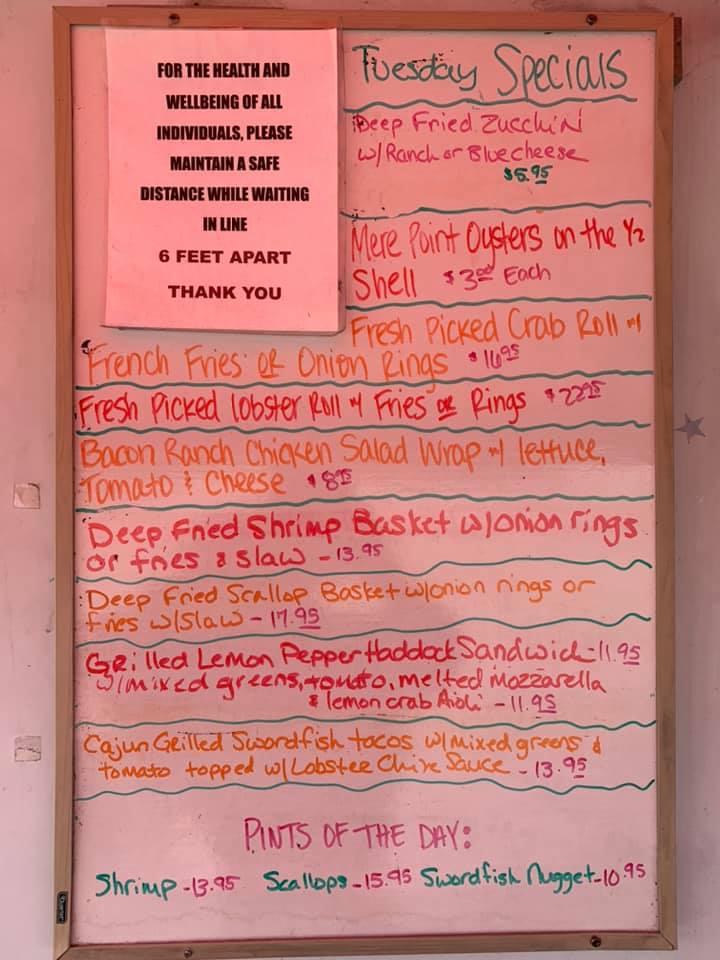 FOR THE HEALTH AND
WELLBEING OF ALL
INDIVIDUALS, PLEASE
MAINTAIN A SAFE
DISTANCE WHILE WAITING
IN LINE
6 FEET APART
THANK YOU
Tuesday Specials
Deep Fried Zucchini
w/Ranch or Bluecheese
$5.95
Mere Point Oysters on the 1/2
Shell $3.00 Each
Fresh Picked Crab Roll w/
French Fries or Onion Rings $16.95
Fresh Picked lobster Roll w/ Fries or Rings $22.95
Bacon Ranch Chicken Salad Wrap w/ lettuce,
Tomato & Cheese $8.95
Deep Fried Shrimp Basket w/onion rings
or fries & slaw - 13.95
Deep Fried Scallop Basket w/onion rings or
fries w/slaw - 17.95
Grilled Lemon Pepper Haddock Sandwich - 11.95
w/mixed greens, tomato, melted mozzarella
& lemon crab Aioli - 11.95
Cajun Grilled Swordfish tacos w/mixed greens &
tomato topped w/Lobster Chive Sauce - 13.95
PINTS OF THE DAY:
Shrimp - 13.95 Scallops - 15.95 Swordfish Nugget - 10.95